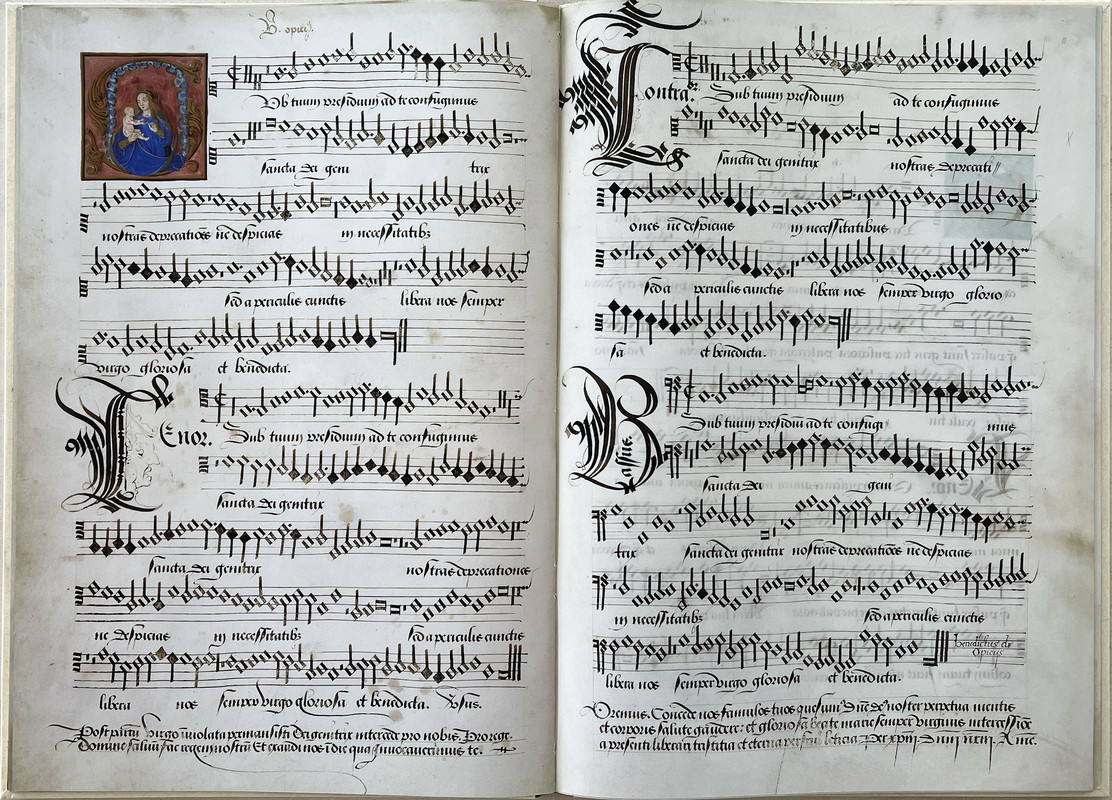 B. opicij.
Sub tuum presidium ad te confugimus
sancta dei geni trix
nostras deprecationes ne despicias in necessitatibz
sed a periculis cunctis libera nos semper
virgo gloriosa et bñdicta.
Tenor. Sub tuum presidiū ad te confugimus
Sancta dei genitrix
sancta dei genitrix nostras deprecationes
ne despicias in necessitatibz sed a periculis cunctis
libera nos semper virgo gloriosa et bñdicta. Vsus.
Post partū virgo inviolata permansisti Dei genitrix intercede pro nobis. Pro rege.
Domine salvū fac regem nostrū Et exaudi nos i die qua invocaverimus te.
Contra. Sub tuum presidium ad te confugimus
sancta dei genitrix nostras deprecati//
ones nē despicias in necessitatibus
sed a periculis cunctis libera nos semper virgo glorio
sa et bñdicta.
Bassus. Sub tuum presidiū ad te confugi mus
sancta dei geni
trix sancta dei genitrix nostras deprecatiões ne despicias
in necessitatibz sed a periculis cunctis
libera nos semper virgo gloriosa et bñdicta.
benedictus de
opicijs
Oremus. Concede nos famulos tuos quesumꝰ dñe deꝰ noster perpetua mentis
et corporis salute gaudere: et gloriosa beate marie semper virginis intercessiõe
a presenti liberari tristitia et eterna perfrui leticia Per xpm dnm nrm. Amē.